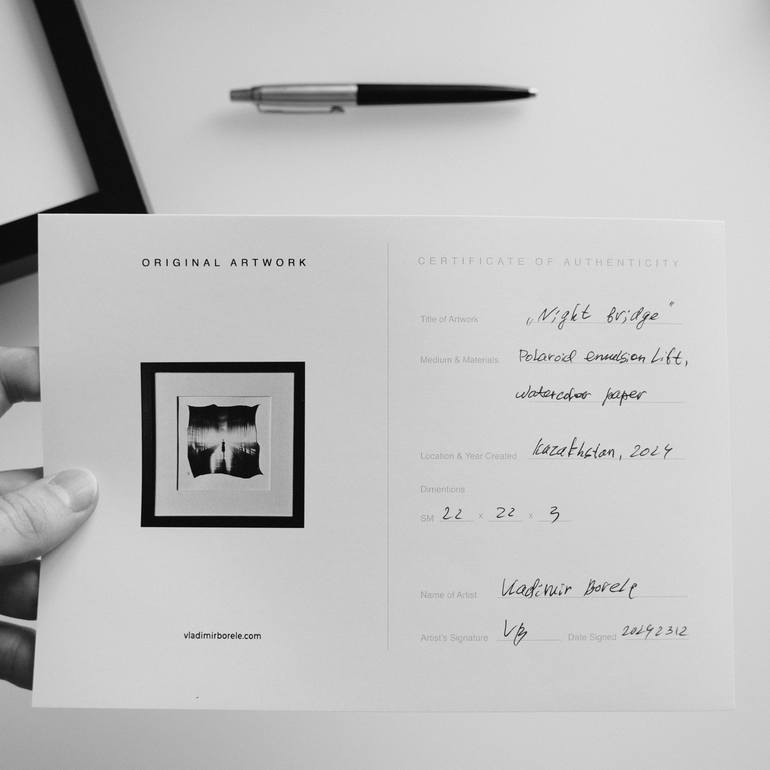 ORIGINAL ARTWORK
vladimirborele.com
CERTIFICATE OF AUTHENTICITY
Title of Artwork „Night bridge”
Medium & Materials Polaroid emulsion Lift,
watercolor paper
Location & Year Created Kazakhstan, 2024
Dimentions
SM 22 x 22 x 3
Name of Artist Vladimir Borele
Artist's Signature VB Date Signed 20242312